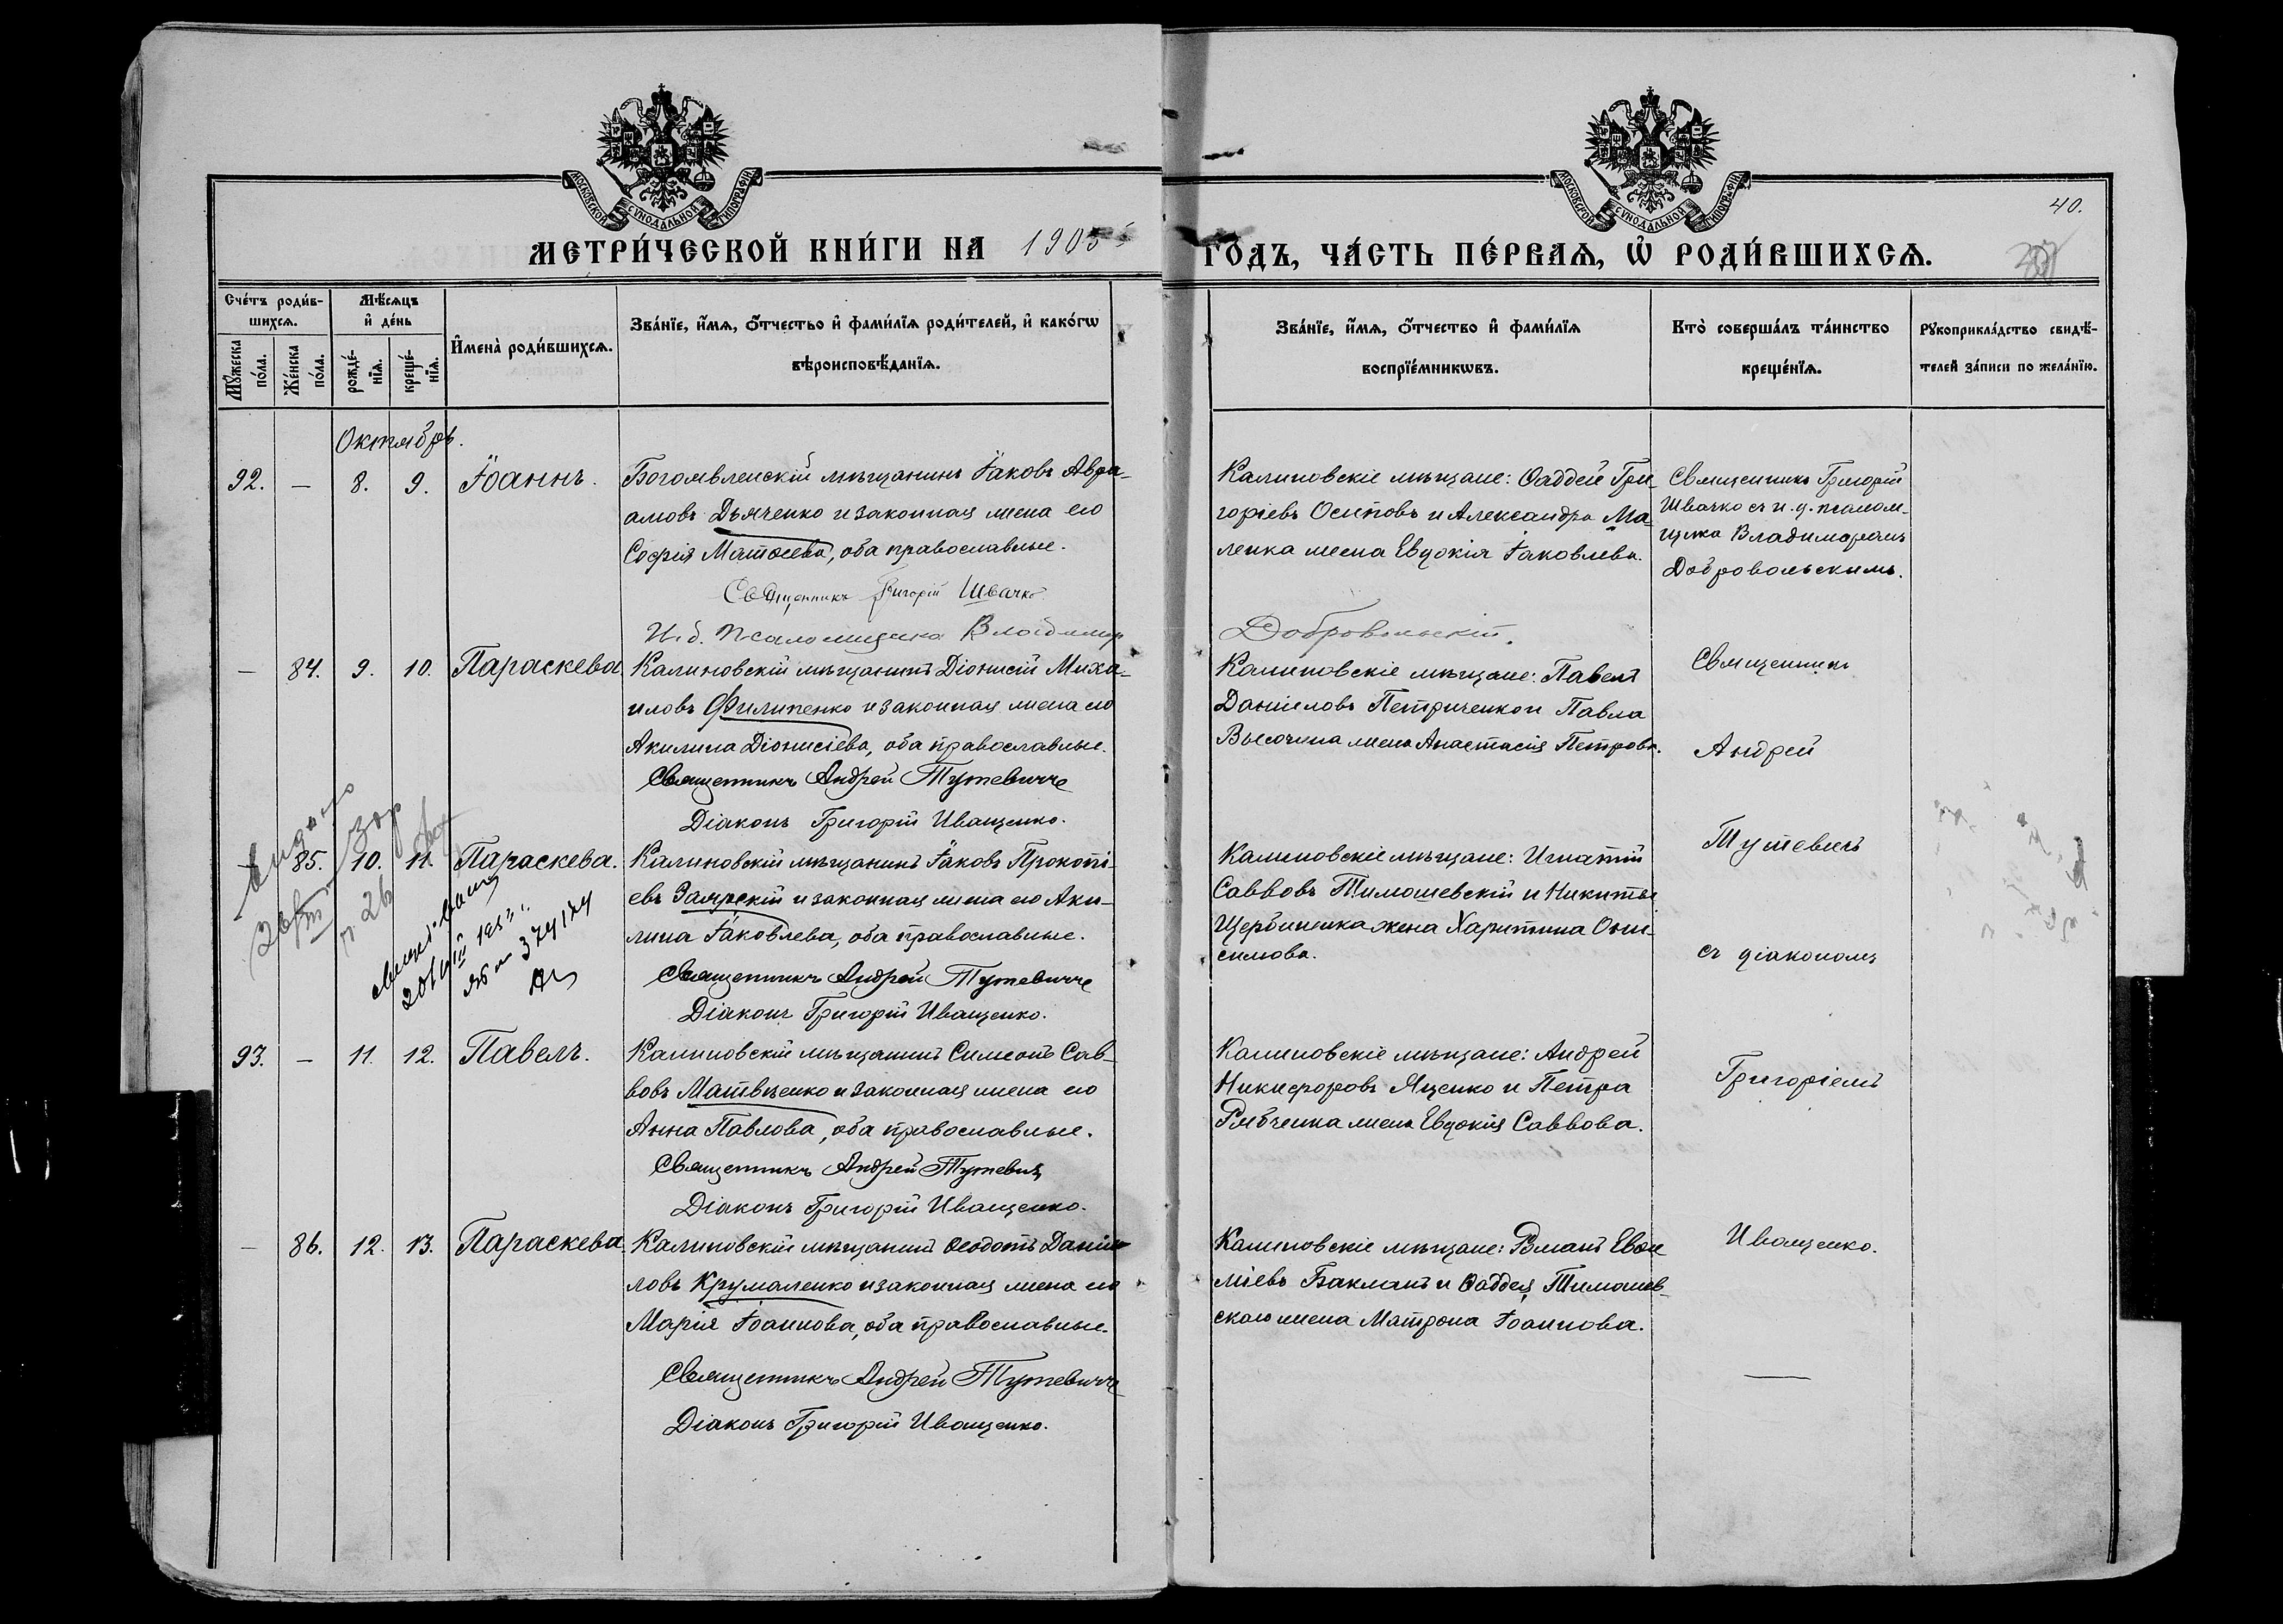 МОСКОВСКОЙ СѴНОДАЛЬНОЙ ТИПОГРАФІИ
МОСКОВСКОЙ СѴНОДАЛЬНОЙ ТИПОГРАФІИ
40.
МЕТРИ́ЧЕСКОЙ КНИ́ГИ НА 1905 ГОДЪ, ЧА́СТЬ ПЕ́РВАЯ, Ѡ РОДИ́ВШИХСЯ.
Сче́тъ роди́в-
шихся.
Мѣ́сяцъ
и҆ де́нь
Мꙋ́жеска по́ла.
Же́нска по́ла.
рожде́-
нїя.
креще́-
нїя.
И҆мена̀ роди́вшихся.
Зва́нїе, и҆́мя, ѻ҆́тчество и҆ фами́лїя роди́телей, и҆ како́гѡ
вѣроисповѣ́данїя.
Зва́нїе, и҆́мя, ѻ҆́тчество и҆ фами́лїя
воспрїе́мникѡвъ.
Кто̀ соверша́лъ та́инство
креще́нїя.
Рꙋкоприкла́дство свидѣ́-
телей за́писи по жела́нїю.
Октябрь.
92. — 8. 9. Іоаннъ.
Богоявленскій мѣщанинъ Іаковъ Авра-
амовъ Дьяченко и законная жена его
Софія Матѳеева, оба православные.
Священникъ Григорій Швачко
И. д. псаломщика Владимир Добровольскій.
Калиновскіе мѣщане: Ѳаддей Гри-
горіевъ Осиповъ и Александра Ма-
ленка жена Евдокія Іаковлева.
Священникъ Григорій
Швачко съ и. д. псалом-
щика Владиміромъ
Добровольскимъ.
— 84. 9. 10. Параскева.
Калиновскій мѣщанинъ Діонисій Миха-
иловъ Филипенко и законная жена его
Акилина Діонисіева, оба православные.
Священникъ Андрей Тутевичъ
Діаконъ Григорій Иващенко.
Калиновскіе мѣщане: Павелъ
Даніиловъ Петриченко и Павла
Высочина жена Анастасія Петрова.
Священникъ
Андрей
85. 10. 11. Параскева.
Калиновскій мѣщанинъ Іаковъ Прокопі-
евъ Заярскій и законная жена его Аки-
лина Іаковлева, оба православные.
Священникъ Андрей Тутевичъ
Діаконъ Григорій Иващенко.
Калиновскіе мѣщане: Игнатій
Саввовъ Тимошевскій и Никиты
Щербиненка жена Харитина Они-
симова.
Тутевичъ
съ діакономъ
93. — 11. 12. Павелъ.
Калиновскій мѣщанинъ Симеонъ Сав-
вовъ Матвѣенко и законная жена его
Анна Павлова, оба православные.
Священникъ Андрей Тутевичъ
Діаконъ Григорій Иващенко.
Калиновскіе мѣщане: Андрей
Никифоровъ Яценко и Петра
Рябченка жена Евдокія Саввова.
Григоріемъ
— 86. 12. 13. Параскева.
Калиновскій мѣщанинъ Ѳеодотъ Даніи-
ловъ Крумаленко и законная жена его
Марія Іоаннова, оба православные.
Священникъ Андрей Тутевичъ
Діаконъ Григорій Иващенко.
Калиновскіе мѣщане: Романъ Евѳи-
міевъ Бакланъ и Ѳаддея Тимошев-
скаго жена Матрона Іоаннова.
Иващенко.